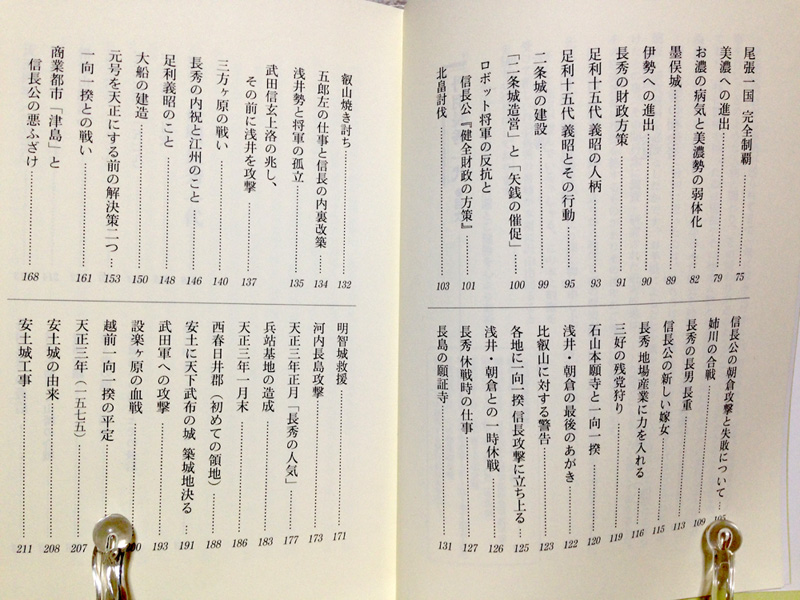 尾張一国 完全制覇……75
美濃への進出……79
お濃の病気と美濃勢の弱体化……82
墨俣城……89
伊勢への進出……90
長秀の財政方策……91
足利十五代 義昭の人柄……93
足利十五代 義昭とその行動……95
二条城の建設……99
「二条城造営」と「矢銭の催促」……100
ロボット将軍の反抗と
信長公『健全財政の方策』……101
北畠討伐……103
信長公の朝倉攻撃と失敗について……105
姉川の合戦……109
長秀の長男 長重……113
信長公の新しい嫁女……115
長秀 地場産業に力を入れる……116
三好の残党狩り……119
石山本願寺と一向一揆……120
浅井・朝倉の最後のあがき……122
比叡山に対する警告……123
各地に一向一揆 信長攻撃に立ち上る……125
浅井・朝倉との一時休戦……126
長秀 休戦時の仕事……127
長島の願証寺……131
叡山焼き討ち……132
五郎左の仕事と信長の内裏改築……134
浅井勢と将軍の孤立……135
武田信玄上洛の兆し、
その前に浅井を攻撃……137
三方ヶ原の戦い……140
長秀の内祝と江州のこと……146
足利義昭のこと……148
大船の建造……150
元号を天正にする前の解決策二つ……153
一向一揆との戦い……161
商業都市「津島」と
信長公の悪ふざけ……168
明智城救援……171
河内長島攻撃……173
天正三年正月「長秀の人気」……177
兵站基地の造成……183
天正三年一月末……186
西春日井郡(初めての領地)……188
安土に天下武布の城 築城地決る……191
武田軍への攻撃……193
設楽ヶ原の血戦……00
越前一向一揆の平定……
天正三年(一五七五)……207
安土城の由来……208
安土城工事……211